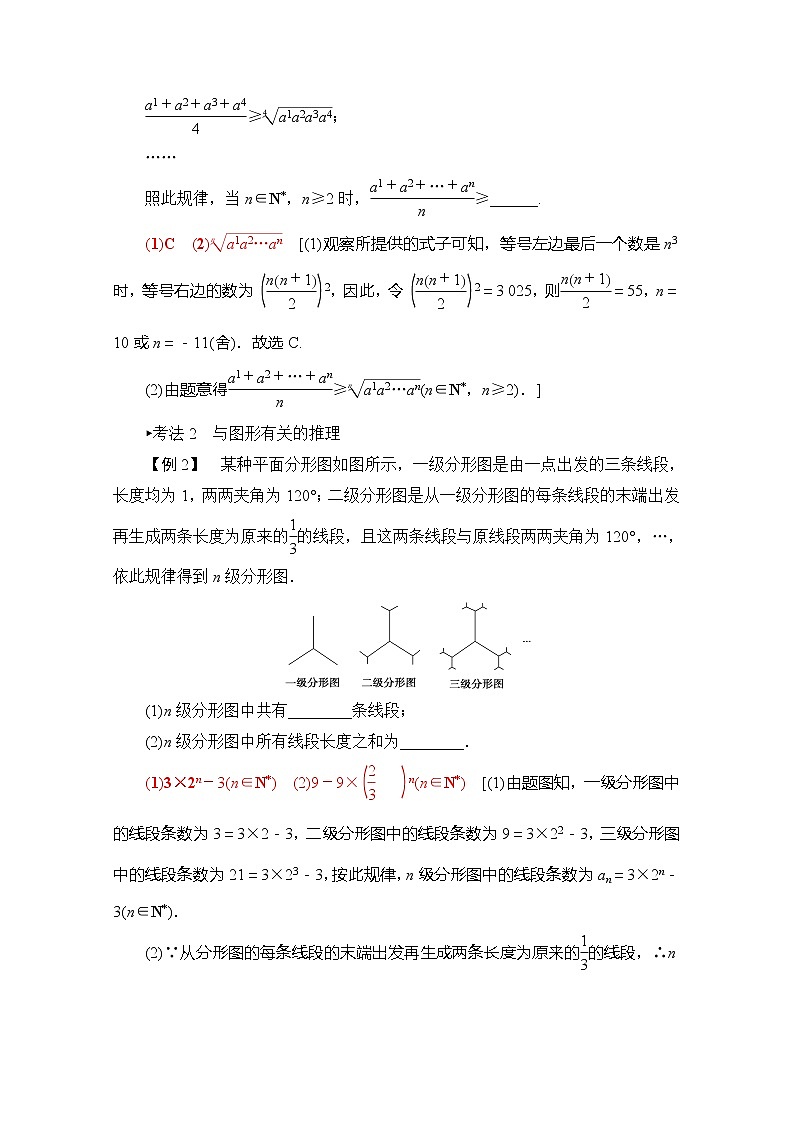 a1+a2+a3+a4/4≥⁴√a1a2a3a4;
……
照此规律，当 n∈N*，n≥2 时，a1+a2+…+an/n≥______.
(1)C (2)ⁿ√a1a2…an [(1)观察所提供的式子可知，等号左边最后一个数是 n3
时，等号右边的数为(n(n+1)/2)2，因此，令(n(n+1)/2)2=3 025，则n(n+1)/2=55，n=
10 或 n=-11(舍)．故选 C.
(2)由题意得a1+a2+…+an/n≥ⁿ√a1a2…an(n∈N*，n≥2)．]
▸考法 2 与图形有关的推理
【例 2】 某种平面分形图如图所示，一级分形图是由一点出发的三条线段，
长度均为 1，两两夹角为 120°；二级分形图是从一级分形图的每条线段的末端出发
再生成两条长度为原来的1/3的线段，且这两条线段与原线段两两夹角为 120°，…，
依此规律得到 n 级分形图．
一级分形图 二级分形图 三级分形图 …
(1)n 级分形图中共有________条线段；
(2)n 级分形图中所有线段长度之和为________．
(1)3×2n-3(n∈N*) (2)9-9×(2/3)n(n∈N*) [(1)由题图知，一级分形图中
的线段条数为 3=3×2-3，二级分形图中的线段条数为 9=3×22-3，三级分形图
中的线段条数为 21=3×23-3，按此规律，n 级分形图中的线段条数为 an=3×2n-
3(n∈N*)．
(2)∵从分形图的每条线段的末端出发再生成两条长度为原来的1/3的线段，∴n